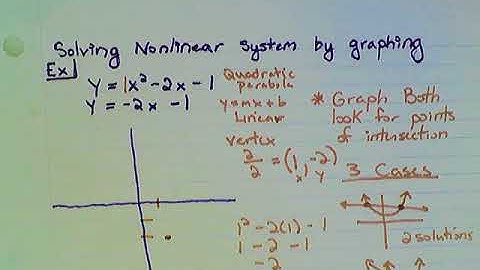 Solving Nonlinear system by graphing
Ex]
y = 1x² - 2x - 1
y = -2x - 1
Quadratic
Parabola
y=mx+b
Linear
* Graph Both
look for points
of intersection
vertex
2/2 = (1, -2)
x y
1² - 2(1) - 1
1 - 2 - 1
-2
3 Cases
2 solutions